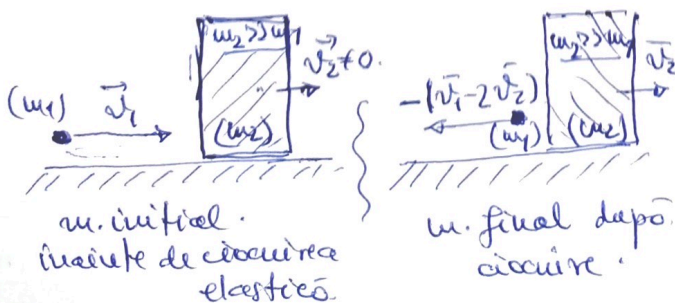 m₂>>m₁
v⃗₂≠0.
(m₁)
v⃗₁
(m₂)
m. inițial.
înainte de ciocnirea
elastică.
m₂>>m₁
v̄₂
-(v̄₁-2v̄₂)
(m₁)
(m₂)
m. final după
ciocnire.